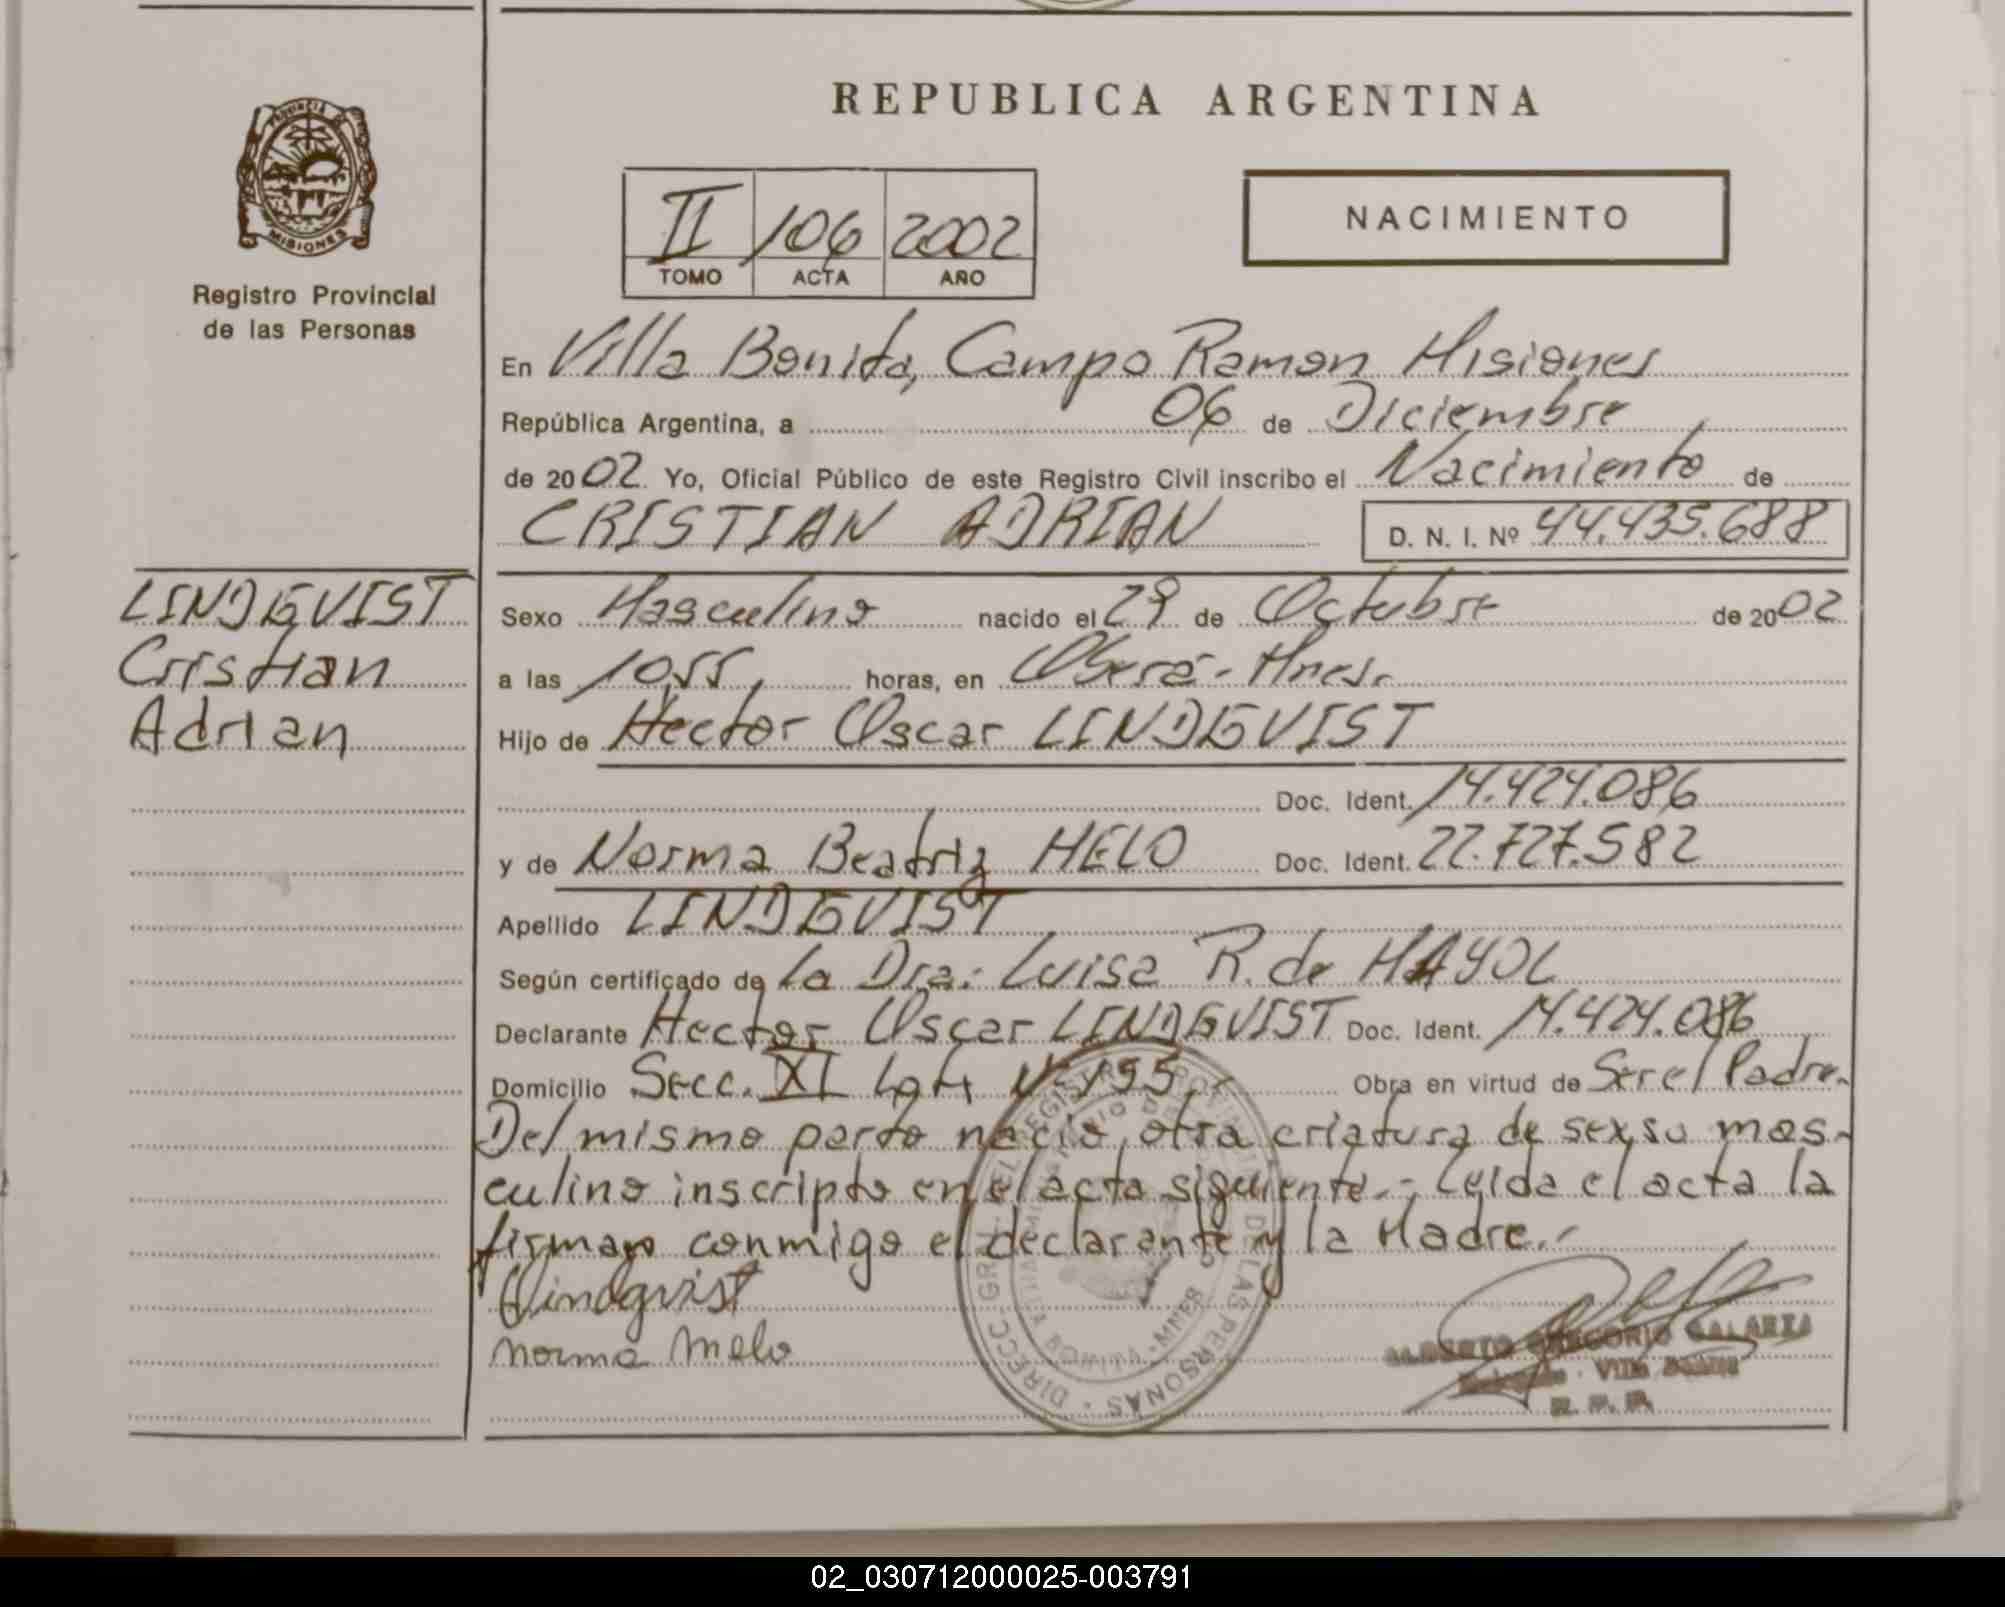 REPUBLICA ARGENTINA
PROVINCIA DE
MISIONES
Registro Provincial
de las Personas
II 106 2002
TOMO ACTA AÑO
NACIMIENTO
En Villa Bonita, Campo Ramon Misiones
República Argentina, a 06 de Diciembre
de 2002. Yo, Oficial Público de este Registro Civil inscribo el Nacimiento de
CRISTIAN ADRIAN D. N. I. Nº 44.435.688
LINDGVIST
Cristian
Adrian
Sexo Masculino nacido el 29 de Octubre de 2002
a las 10,55, horas, en Oberá - Mnes.
Hijo de Hector Oscar LINDGVIST
Doc. Ident. 14.424.086
y de Norma Beatriz MELO Doc. Ident. 22.727.582
Apellido LINDGVIST
Según certificado de la Dra. Luisa R. de MAYOL
Declarante Hector Oscar LINDGVIST Doc. Ident. 14.424.086
Domicilio Secc. XI Lote Nº 155.- Obra en virtud de Ser el Padre.
Del mismo parto nacio otra criatura de sexso mas-
culino inscripto en el acta siguiente.- Leida el acta la
firman conmigo el declarante y la Madre.-
Lindqvist
Norma Melo
DIRECC. GRAL. DEL REGISTRO PROVINCIAL DE LAS PERSONAS
BONITA - MNES
ALBERTO GREGORIO GALARZA
Delegado - Villa Bonita
R. P. P.
02_030712000025-003791